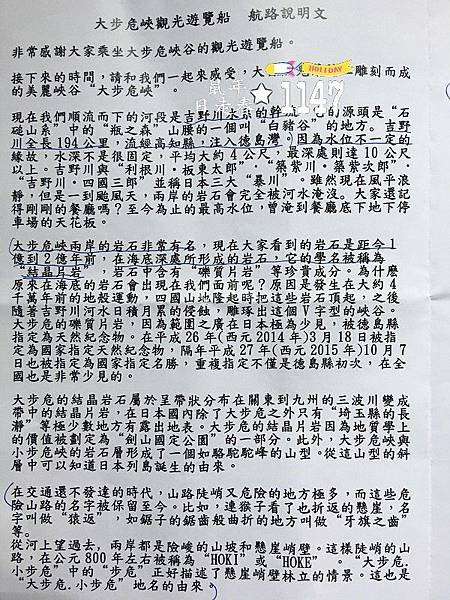 大步危峽觀光遊覽船　航路說明文
非常感謝大家乘坐大步危峽谷的觀光遊覽船。
HOLIDAY
接下來的時間，請和我們一起來感受，大 雕刻而成
的美麗峽谷“大步危峽”。
1147
現在我們順流而下的河段是吉野川水系的幹流 它的源頭是“石
鎚山系”中的“瓶之森”山腰的一個叫“白豬谷”的地方。吉野
川全長194公里，流經高知縣，注入德島灣。因為水位不一定的
緣故，水深不是很固定，平均大約4公尺，最深處則達10公尺
以上。吉野川與“利根川·板東太郎”、“築紫川·築紫次郎”、
“吉野川·四國三郎”並稱日本三大“暴川”。雖然現在風平浪
靜，但是一到颱風天，兩岸的岩石會完全被河水淹沒。大家還記
得剛剛的餐廳嗎？至今為止的最高水位，曾淹到餐廳底下地下停
車場的天花板。
大步危峽兩岸的岩石非常有名，現在大家看到的岩石是距今1
億到2億年前，在海底深處所形成的岩石，它的學名被稱為
“結晶片岩”，岩石中含有“礫質片岩”等珍貴成分。為什麼
原來在海底的岩石會出現在我們面前呢？原因是發生在大約4
千萬年前的地殼運動，四國山地隆起時把這些岩石頂起，之後
隨著吉野川河水日積月累的侵蝕，雕琢出這個V字型的峽谷。
大步危的礫質片岩，因為範圍之廣在日本極為少見，被德島縣
指定為天然紀念物。在平成26年(西元2014年)3月18日被指
定為國家指定天然紀念物，隔年平成27年(西元2015年)10月7
日也被指定為國家指定名勝，重複指定不僅是德島縣初次，在全
國也是非常少見的。
大步危的結晶岩石屬於呈帶狀分布在關東到九州的三波川變成
帶中的結晶片岩，在日本國內除了大步危之外只有“埼玉縣的長
瀞”等極少數地方有露出地表。大步危的結晶片岩因為地質學上
的價值被劃定為“劍山國定公園”的一部分。此外，大步危峽與
小步危峽的岩石層形成了一個如駱駝駝峰的山型。從這山型的斜
層中可以知道日本列島誕生的由來。
在交通還不發達的時代，山路陡峭又危險的地方極多，而這些危
險山路的名字被保留至今。比如，連猴子看了也折返的懸崖，名
字叫做“猿返”，如鋸子的鋸齒般曲折的地方叫做“牙旗之齒”
等。
從河上望過去，兩岸都是險峻的山坡和懸崖峭壁。這樣陡峭的山
路，在公元800年左右被稱為“HOKI”或“HOKE”。“大步危.
小步危”中的“步危”正好描述了懸崖峭壁林立的情景。這也是
“大步危.小步危”地名的由來。